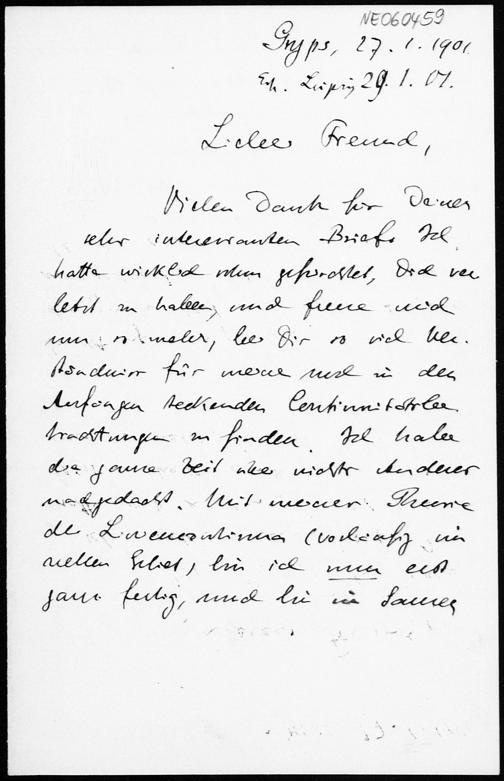 NE060459
Gryps, 27.1.1901
Erh. Leipzig 29.1.01.
Lieber Freund,
Vielen Dank für Deinen
sehr interessanten Brief. Ich
hatte wirklich schon gefürchtet, Dich ver
letzt zu haben, und freue mich
nun so mehr, bei Dir so viel Ver-
ständniss für meine noch in den
Anfängen steckenden Continuitätsbe
trachtungen zu finden. Ich habe
die ganze Zeit über nichts Anderes
nachgedacht. Mit meiner Theorie
der (vorläufig im
reellen Gebiet) bin ich nun erst
ganz fertig, und bin in